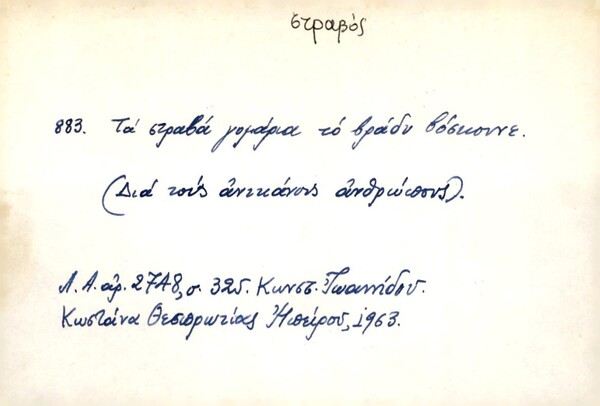 στραβός
883. Τά στραβά γομάρια τό βράδυ βόσκουνε.
(Διά τούς ἀνικάνους ἀνθρώπους).
Λ. Α. ἀρ. 2748, σ. 325. Κωνστ. Ἰωαννίδου.
Κωστάνα Θεσπρωτίας Ἠπείρου, 1963.